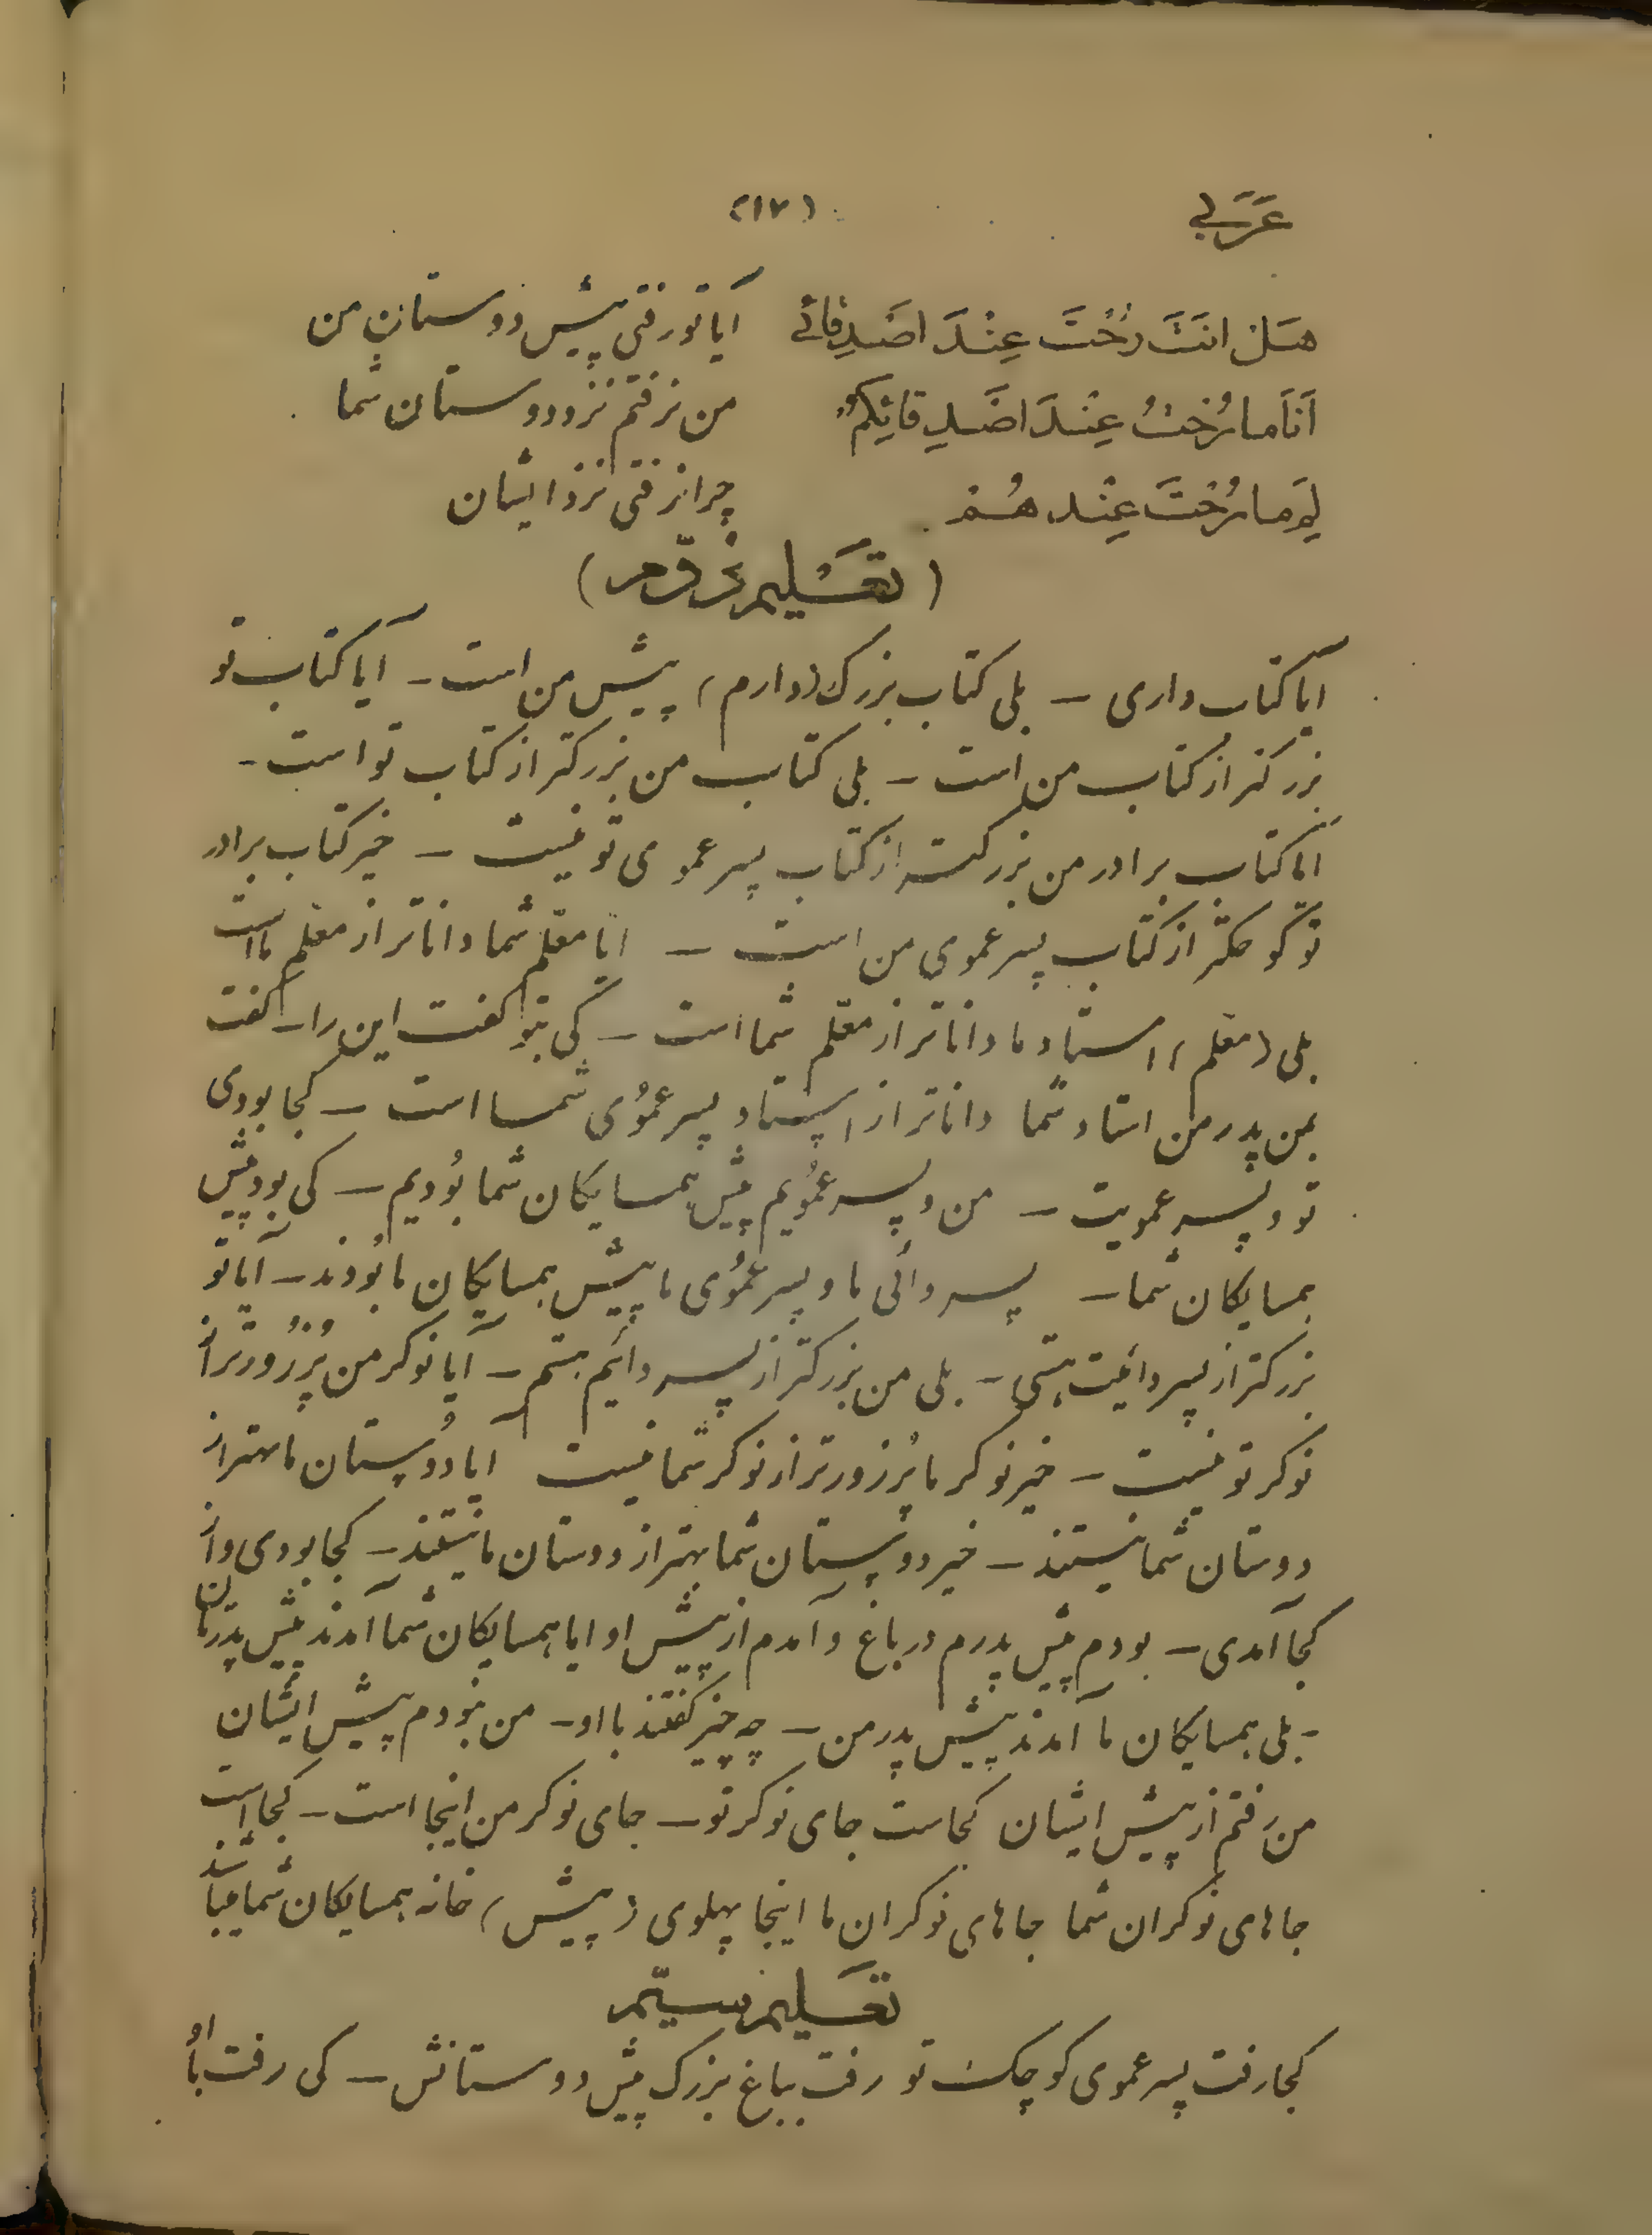 عَرَبی (١٧)
هَل انتَ رُحْتَ عِنْدَ اصْدِقائے آیا تو رفتی پیش دوستانِ من
اَنَا ما رُحْتُ عِنْدَ اصْدِقائِکُمْ من نرفتم نزد دوستان شما
لِمَ ما رُحْتَ عِنْد هُمْ چرا نرفتی نزد ایشان
(تعلیم دوّم)
ایا کتاب داری – بلی کتاب بزرک (دارم) پیش من است – آیا کتاب تو
بزرکتر از کتاب من است – بلی کتاب من بزرکتر از کتاب تو است –
ایا کتاب برادر من بزرکتر از کتاب پسر عموی تو نیست – خیر کتاب برادر
تو کوچکتر از کتاب پسر عموی من است – ایا معلّم شما داناتر از معلم ما است
بلی (معلم) استاد ما داناتر از معلّم شما است – کی بتو کفت این را – کفت
بمن پدر من استاد شما داناتر از استاد پسر عموُی شما است – کجا بودی
تو و پسر عمویت – من و پسر عموُیم پیش همسایکان شما بوُدیم – کی بود پیش
همسایکان شما – پسر دائی ما و پسر عموُی ما پیش همسایکان ما بوُدند – آیا تو
بزرکتر از پسر دائیت هستی – بلی من بزرکتر از پسر دائیم هستم – آیا نوکر من پُرزورتر از
نوکر تو نیست – خیر نوکر ما پُرزورتر از نوکر شما نیست ایا دوُستان ما بهتر از
دوستان شما نیستند – خیر دوستان شما بهتر از دوستان ما نیستند – کجا بودی و از
کجا آمدی – بودم پیش پدرم در باغ و آمدم از پیش او ایا همسایکان شما آمدند پیش پدرتان
– بلی همسایکان ما آمدند پیش پدر من – چه چیز کفتند با او – من نبودم پیش ایشان
من رفتم از پیش ایشان کجاست جای نوکر تو – جای نوکر من اینجا است – کجا است
جاهای نوکران شما جاهای نوکران ما اینجا پهلوی (پیش) خانه همسایکان شما میباشد
تعلیم سیّم
کجا رفت پسر عموی کوچک تو رفت بباغ بزرک پیش دوستانش – کی رفت با اوُ